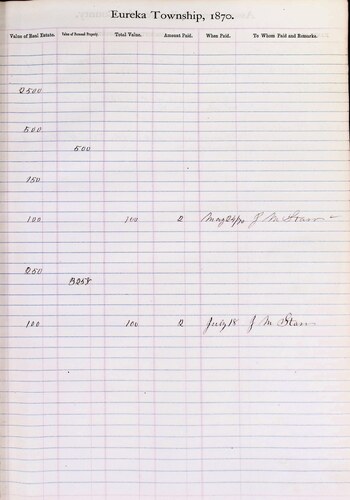 Eureka Township, 1870.
Value of Real Estate. Value of Personal Property. Total Value. Amount Paid. When Paid. To Whom Paid and Remarks.
2500
500
500
150
100 100 2 May 24/70 J M
250
100 100 2 July 18 J M Starr